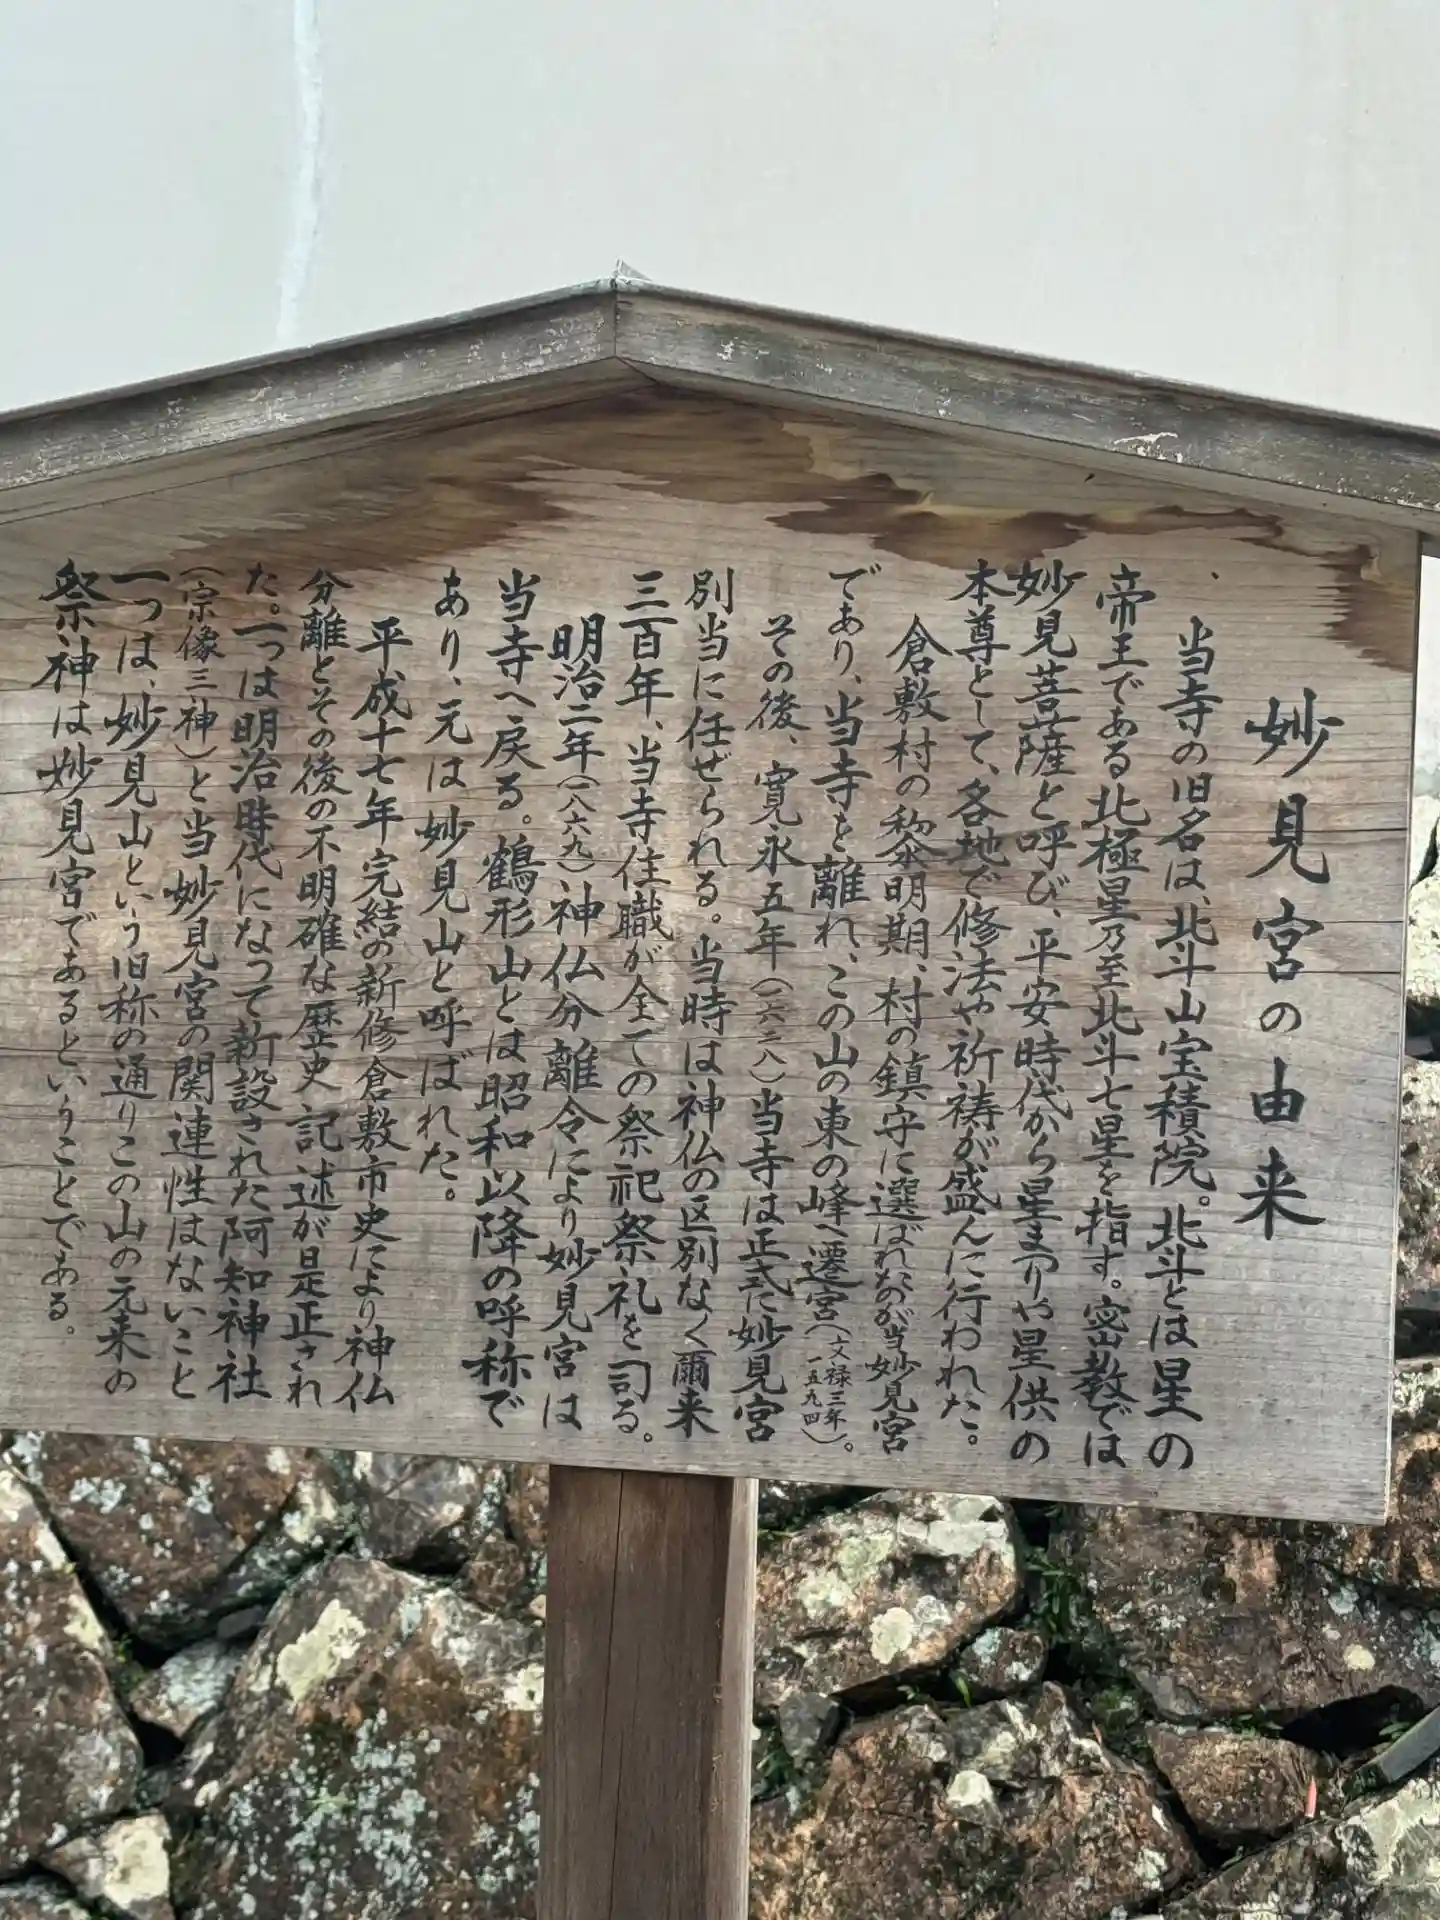 妙見宮の由来
当寺の旧名は、北斗山宝積院。北斗とは星の
帝王である北極星乃至北斗七星を指す。密教では
妙見菩薩と呼び、平安時代から星まつりや星供の
本尊として、各地で修法や祈祷が盛んに行われた。
倉敷村の黎明期、村の鎮守に選ばれたのが当妙見宮
であり、当寺を離れ、この山の東の峰へ遷宮(文禄三年 一五九四)。
その後、寛永五年(一六二八)当寺は正式に妙見宮
別当に任ぜられる。当時は神仏の区別なく爾来
三百年、当寺住職が全ての祭祀祭礼を司る。
明治二年(一八六九)神仏分離令により妙見宮は
当寺へ戻る。鶴形山とは昭和以降の呼称で
あり、元は妙見山と呼ばれた。
平成十七年完結の新修倉敷市史により神仏
分離とその後の不明確な歴史記述が是正され
た。一つは明治時代になって新設された阿知神社
(宗像三神)と当妙見宮の関連性はないこと
一つは、妙見山という旧称の通りこの山の元来の
祭神は妙見宮であるということである。